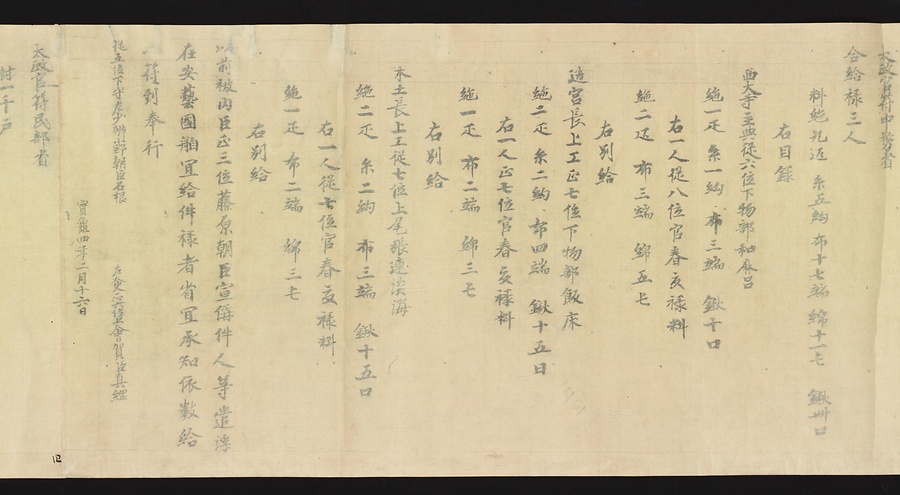 太政官符中務省
合給祿三人
料絁九疋 糸五絇 布十七端 綿十一屯 鍬卌口
右目録
西大寺主典從六位下物部和麻呂
絁一疋 糸一絇 布三端 鍬十口
右一人從八位官春夏祿料
絁二疋 布三端 綿五屯
右別給
造宮長上工正七位下物部飯床
絁二疋 糸二絇 布四端 鍬十五口
右一人正七位官春夏祿料
絁一疋 布二端 綿三屯
右別給
木工長上工從七位上尾張連淡海
絁二疋 糸二絇 布三端 鍬十五口
右一人從七位官春夏祿料
絁一疋 布二端 綿三屯
右別給
以前被内臣正三位藤原朝臣宣偁件人等遣浮
在安藝國舶宜給件祿者省宜承知依數給
符到奉行
從五位下守左少辨 朝臣石根 會賀臣真綱
寶龜四年二月十六日
太政官符民部省
封一千戸